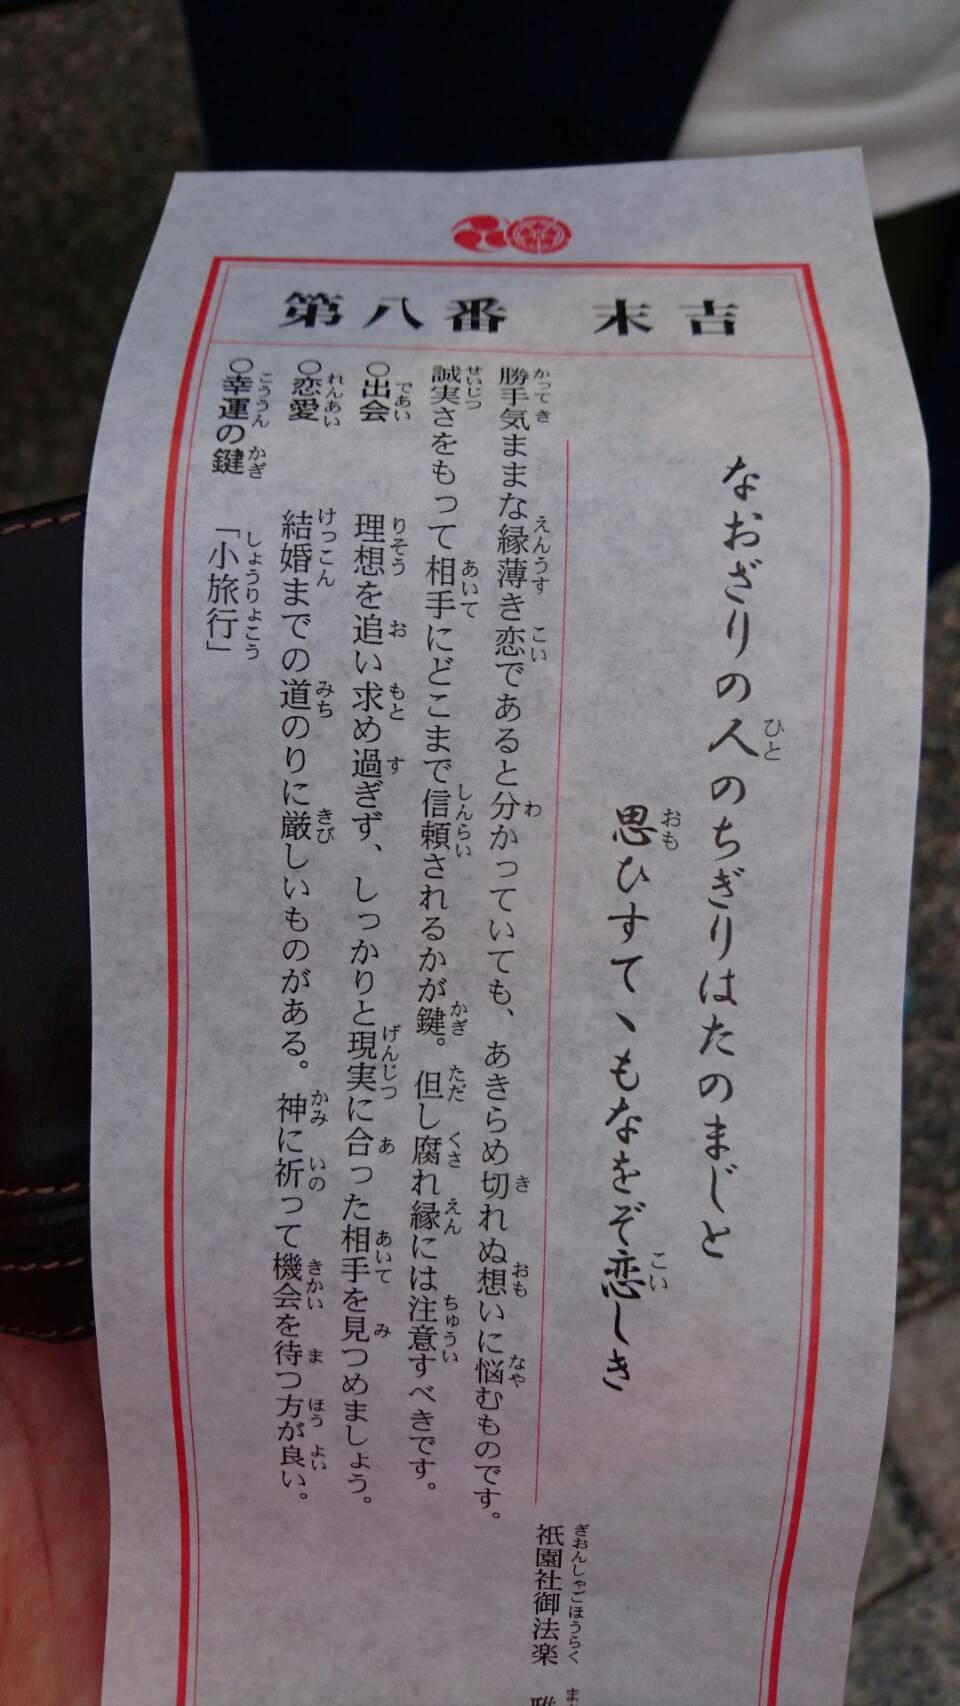 第八番　末吉
なおざりの人のちぎりはたのまじと
思ひすてゝもなをぞ恋しき
祇園社御法楽
勝手気ままな縁薄き恋であると分かっていても、あきらめ切れぬ想いに悩むものです。
誠実さをもって相手にどこまで信頼されるかが鍵。但し腐れ縁には注意すべきです。
○出会　理想を追い求め過ぎず、しっかりと現実に合った相手を見つめましょう。
○恋愛　結婚までの道のりに厳しいものがある。神に祈って機会を待つ方が良い。
○幸運の鍵　「小旅行」